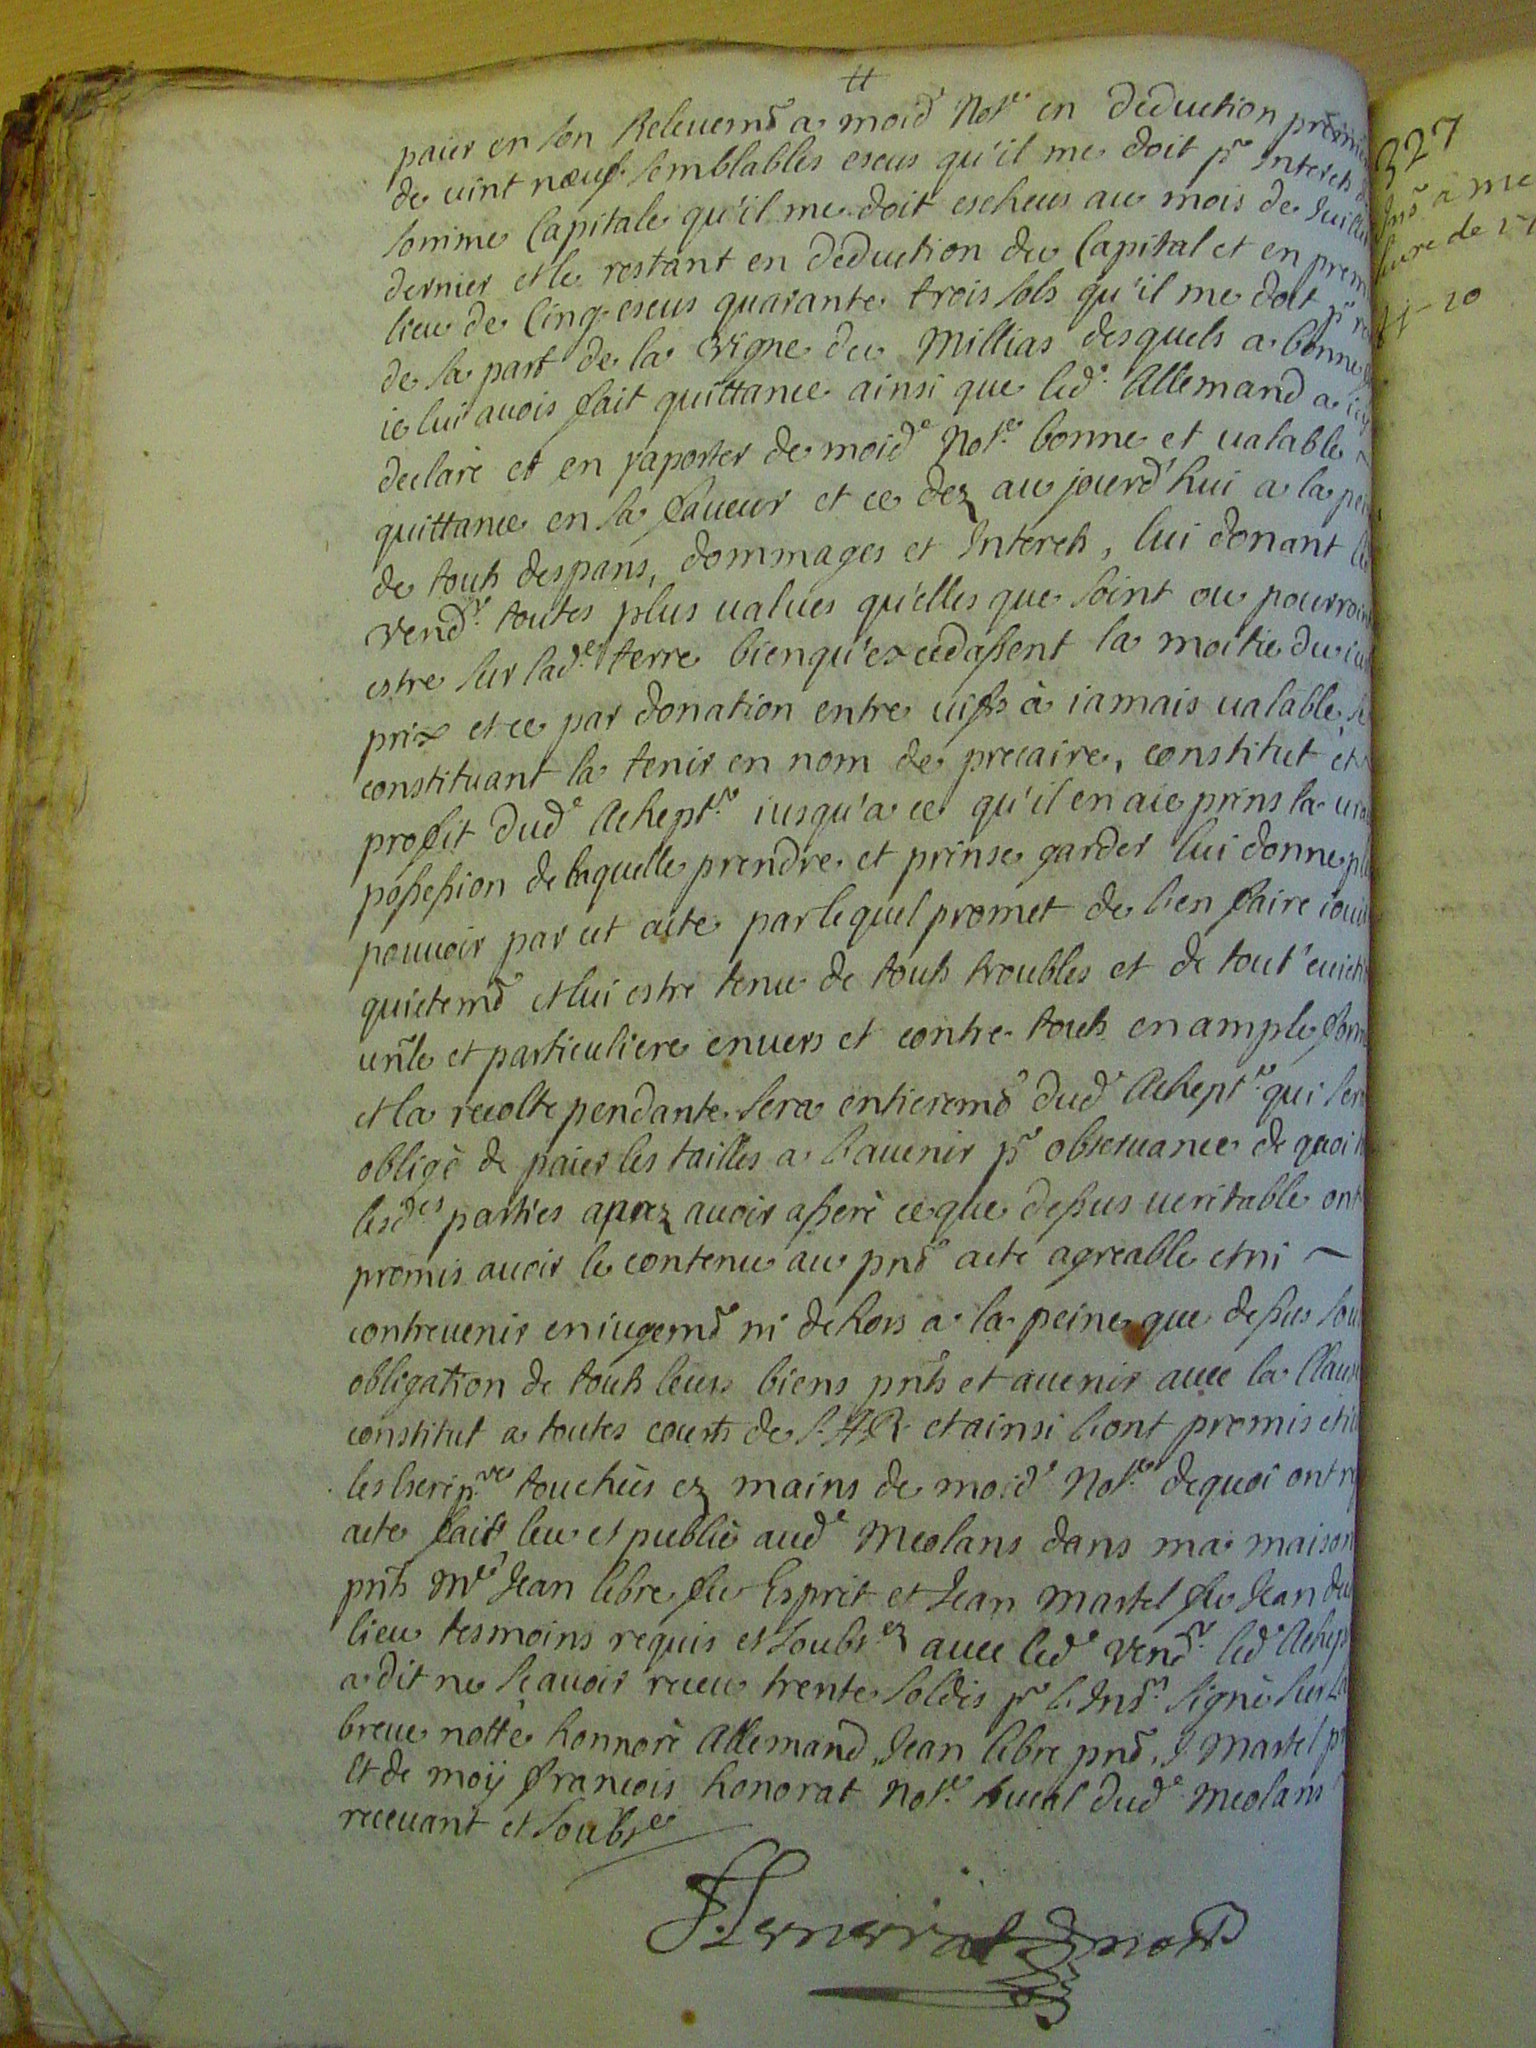 tt
paier en son Relevemt a moid.e Not.e en deduction premie
de vint nœuf semblables escus qu'il me doit pr Interets d
somme Capitale qu'il me doit escheus au mois de Juillet
dernier et le restant en deduction du Capital et en prem
lieu de Cinq escus quarante trois sols qu'il me doit pr re
de sa part de la vigne du Millias desquels a bonne f
ie lui avois fait quittance ainsi que led.e Allemand a icy
declarè et en raporter de moid.e Not.e bonne et valable ~
quittance en sa faveur et ce dez aujourd'hui a la pei
de touts despans, dommages et Interets, lui donant le
vendr. toutes plus values qu'elles que soint ou pourroint
estre sur lad.e terre bienqu'excedassent la moitie du iu
prix et ce par donation entre vifs à iamais valable, se
constituant la tenir en nom de precaire, constitut et
profit dud.e Acheptr. iusqu'a ce qu'il en aie prins la vra
possession de laquelle prendre et prinse garder lui donne pl
pouvoir par cet acte par lequel promet de l'en faire iouir
quietemt et lui estre tenu de touts troubles et de tout' evicti
unlle et particuliere envers et contre touts en ample form
et la recolte pendante sera entieremt dud.e Acheptr. qui sera
obligè de paier les tailles a l'avenir pr observance de quoi
lesd.es parties aprez avoir asserè ce que dessus veritable ont
promis avoir le contenu au pnt acte agreable et ni ~
contrevenir en iugemt ni dehors a la peine que dessus sou
obligation de touts leurs biens pnts et avenir avec la Clause
constitut a toutes courts de S.A.R. et ainsi l'ont promis et iu
les scrip.res touchées ez mains de moid.e Not.e dequoi ont re
acte fait leu et publiè aud.e Meolans dans ma maison
pnts Me Jean Cibre feu Esprit et Jean Martel feu Jean du
lieu tesmoins requis et soubs.ez avec led.e vendr. led.e Achep
a dit ne sçavoir receu trente soldis pr l'Insn. signè sur la
breve nottè honnorè Allemand, Jean Cibre pnt, J. Martel p
Et de moy françois honorat Not.e ducal dud.e Meolans
recevant et soubs.e
Honnorat not
327
Ins. à Me
livre de 17
20